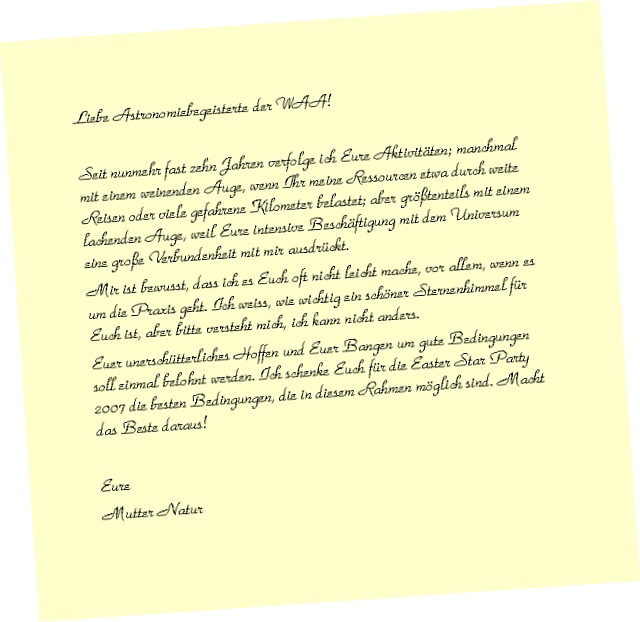 Liebe Astronomiebegeisterte der WAA!
Seit nunmehr fast zehn Jahren verfolge ich Eure Aktivitäten; manchmal
mit einem weinenden Auge, wenn Ihr meine Ressourcen etwa durch weite
Reisen oder viele gefahrene Kilometer belastet; aber größtenteils mit einem
lachenden Auge, weil Eure intensive Beschäftigung mit dem Universum
eine große Verbundenheit mit mir ausdrückt.
Mir ist bewusst, dass ich es Euch oft nicht leicht mache, vor allem, wenn es
um die Praxis geht. Ich weiss, wie wichtig ein schöner Sternenhimmel für
Euch ist, aber bitte versteht mich, ich kann nicht anders.
Euer unerschütterliches Hoffen und Euer Bangen um gute Bedingungen
soll einmal belohnt werden. Ich schenke Euch für die Easter Star Party
2007 die besten Bedingungen, die in diesem Rahmen möglich sind. Macht
das Beste daraus!
Eure
Mutter Natur